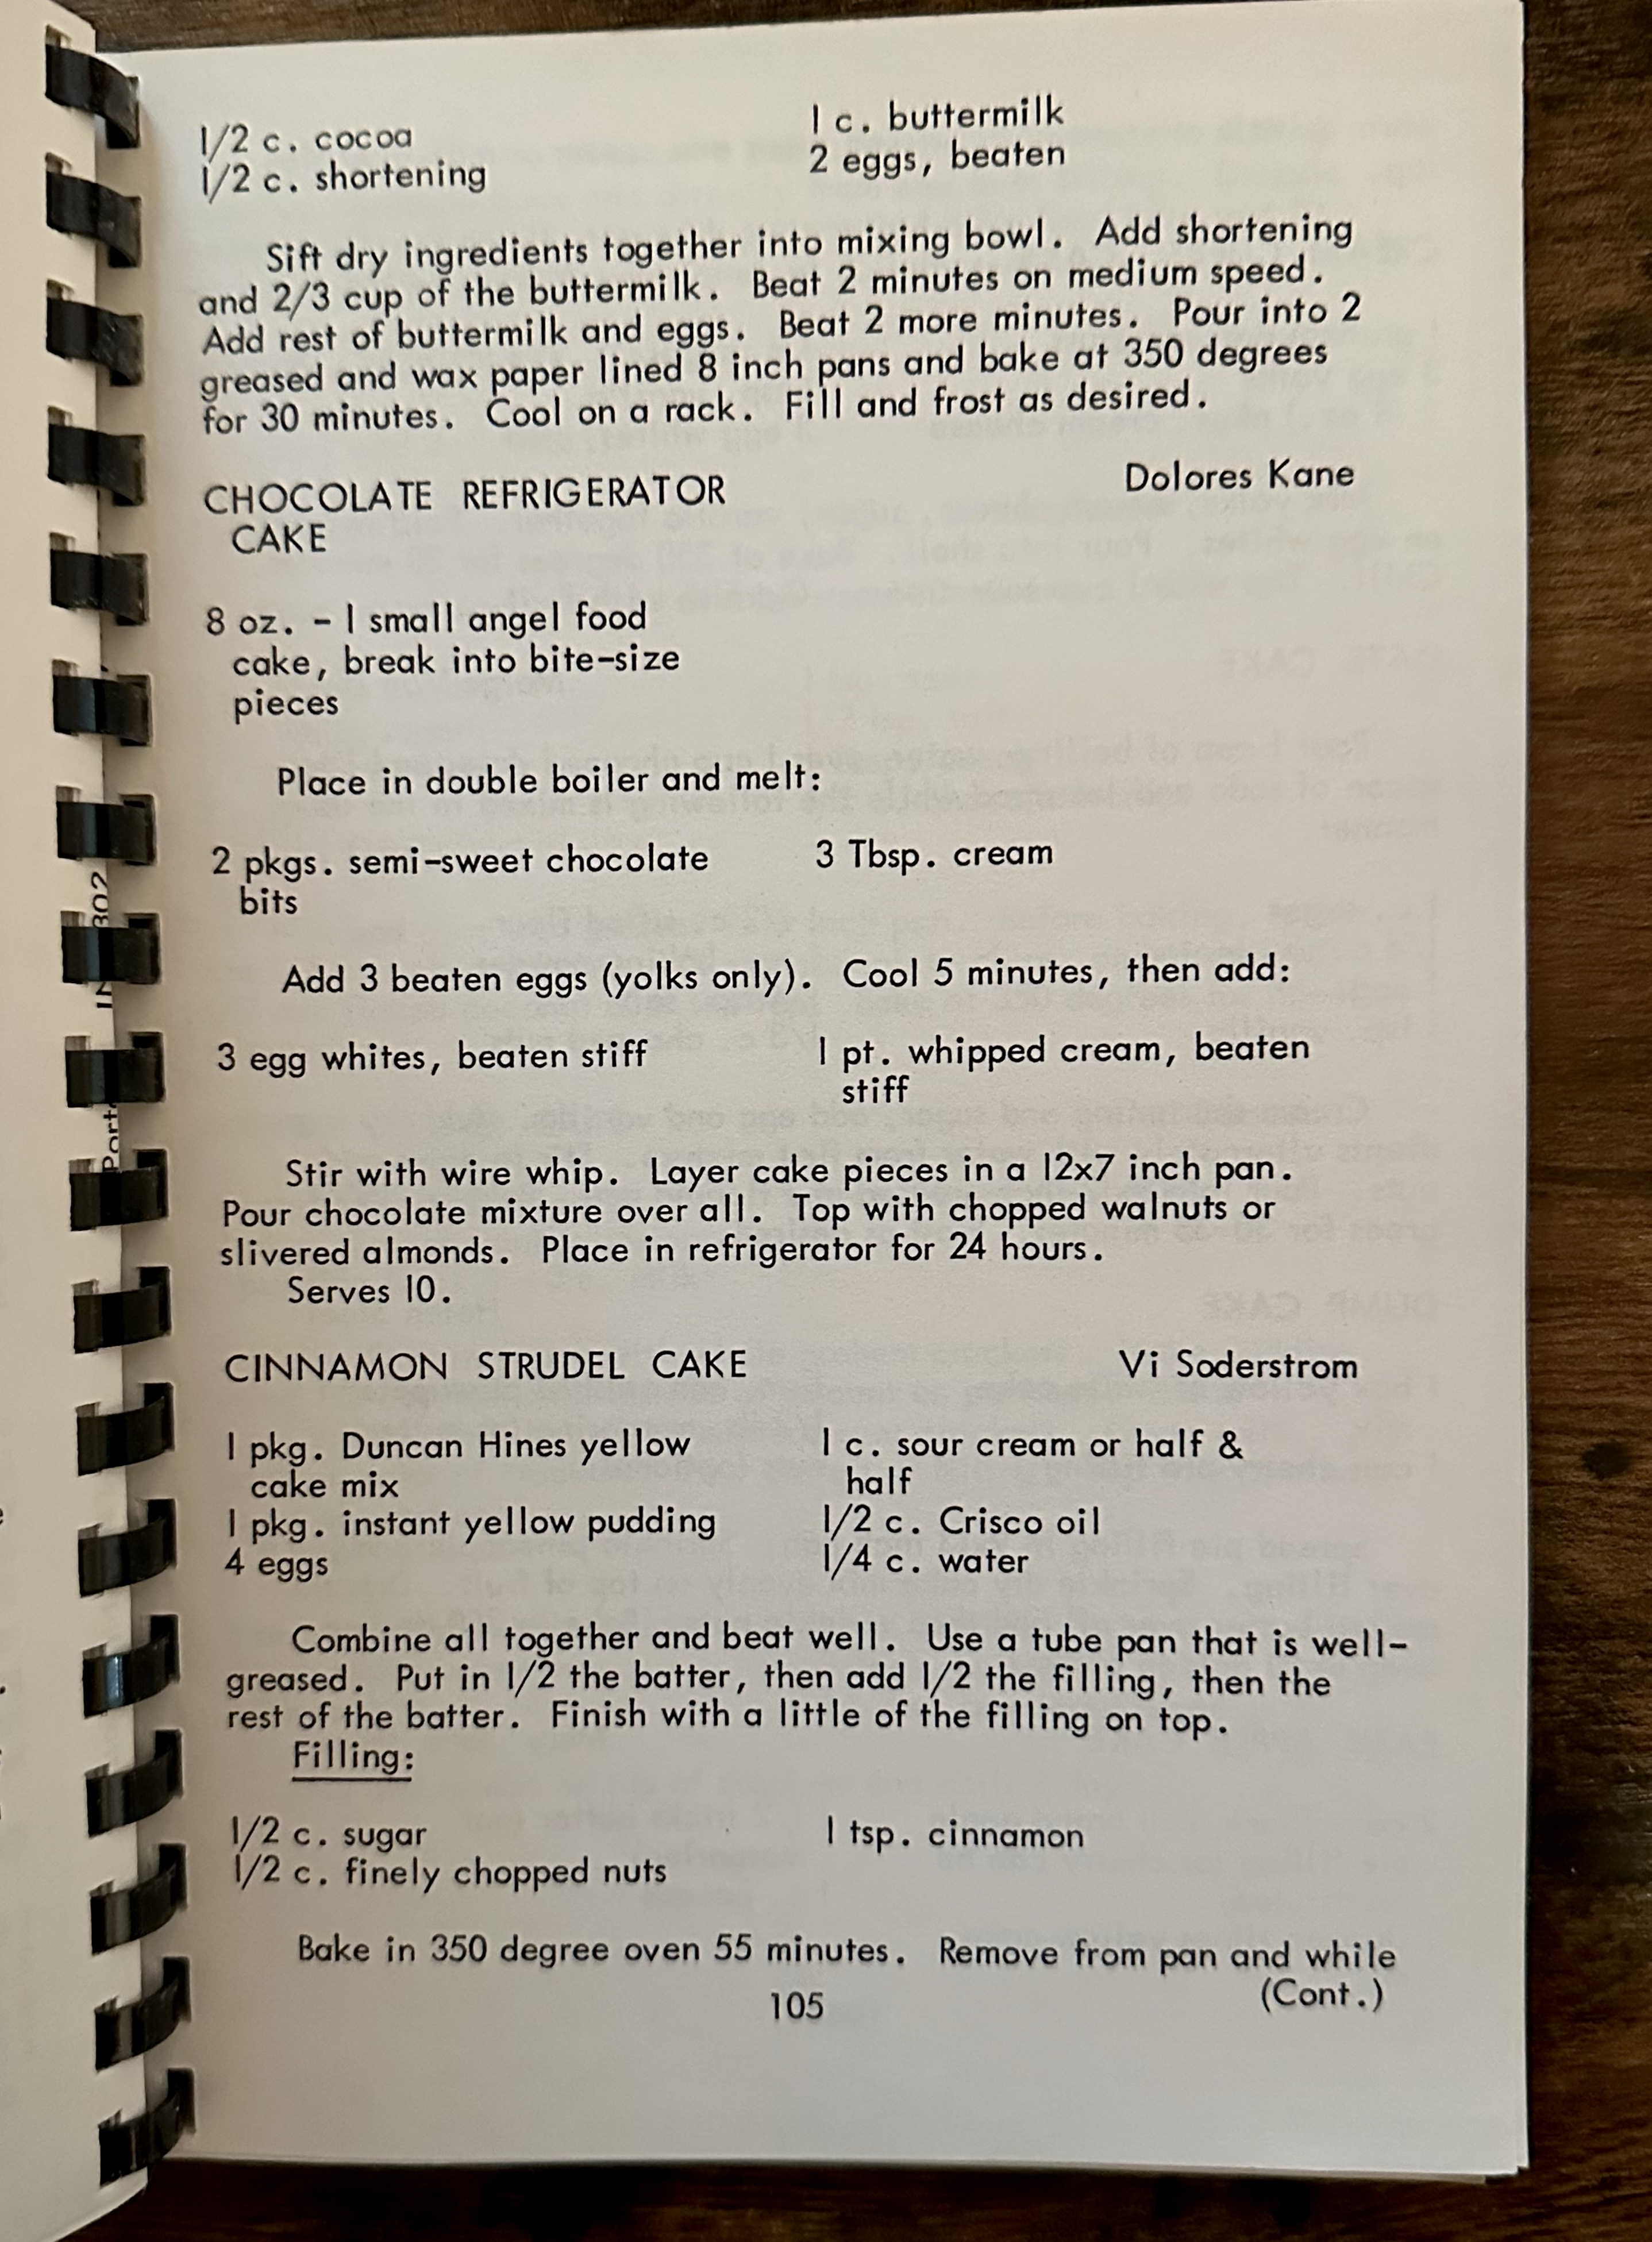 1/2 c. cocoa
1/2 c. shortening
1 c. buttermilk
2 eggs, beaten
Sift dry ingredients together into mixing bowl. Add shortening
and 2/3 cup of the buttermilk. Beat 2 minutes on medium speed.
Add rest of buttermilk and eggs. Beat 2 more minutes. Pour into 2
greased and wax paper lined 8 inch pans and bake at 350 degrees
for 30 minutes. Cool on a rack. Fill and frost as desired.
CHOCOLATE REFRIGERATOR
CAKE
Dolores Kane
8 oz. - 1 small angel food
cake, break into bite-size
pieces
Place in double boiler and melt:
2 pkgs. semi-sweet chocolate
bits
3 Tbsp. cream
Add 3 beaten eggs (yolks only). Cool 5 minutes, then add:
3 egg whites, beaten stiff
1 pt. whipped cream, beaten
stiff
Stir with wire whip. Layer cake pieces in a 12x7 inch pan.
Pour chocolate mixture over all. Top with chopped walnuts or
slivered almonds. Place in refrigerator for 24 hours.
Serves 10.
CINNAMON STRUDEL CAKE
Vi Soderstrom
1 pkg. Duncan Hines yellow
cake mix
1 pkg. instant yellow pudding
4 eggs
1 c. sour cream or half &
half
1/2 c. Crisco oil
1/4 c. water
Combine all together and beat well. Use a tube pan that is well-
greased. Put in 1/2 the batter, then add 1/2 the filling, then the
rest of the batter. Finish with a little of the filling on top.
Filling:
1/2 c. sugar
1/2 c. finely chopped nuts
1 tsp. cinnamon
Bake in 350 degree oven 55 minutes. Remove from pan and while
(Cont.)
105